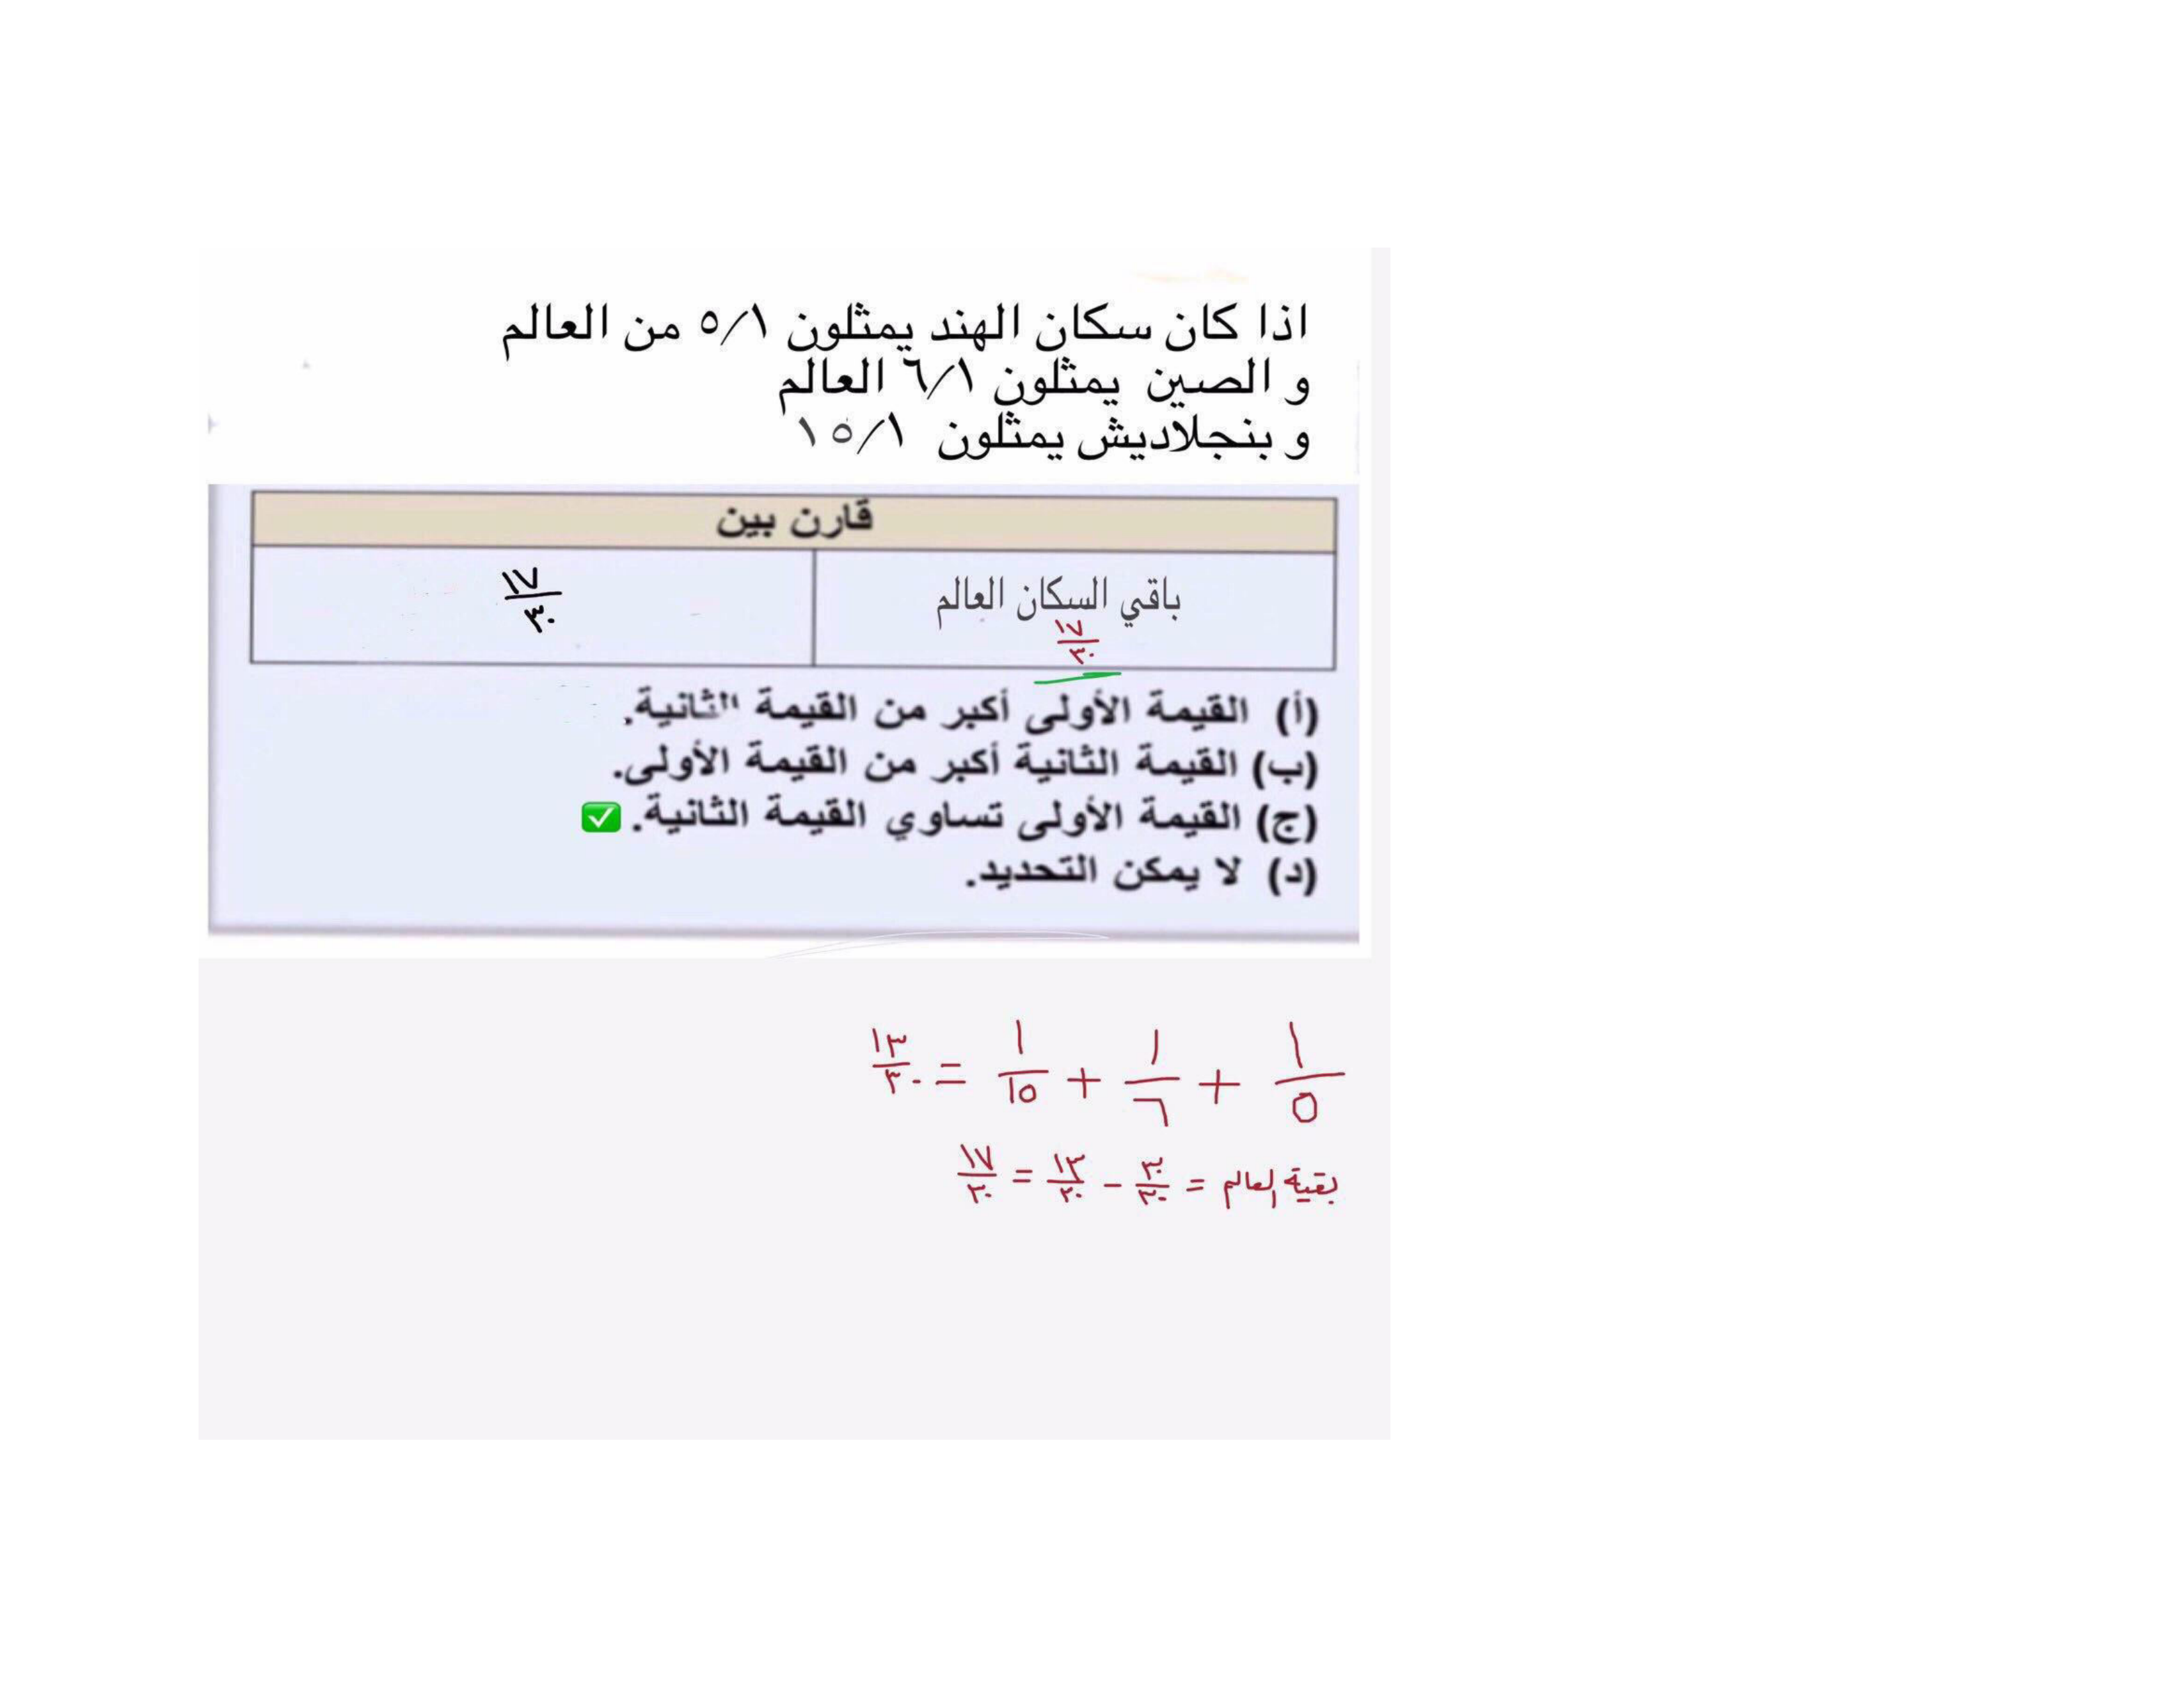 اذا كان سكان الهند يمثلون ٥/١ من العالم
و الصين يمثلون ٦/١ العالم
و بنجلاديش يمثلون ١٥/١
قارن بين
باقي السكان العالم
١٧/٣٠
١٧/٣٠
(أ) القيمة الأولى أكبر من القيمة الثانية.
(ب) القيمة الثانية أكبر من القيمة الأولى.
(ج) القيمة الأولى تساوي القيمة الثانية. ✅
(د) لا يمكن التحديد.
١/٥ + ١/٦ + ١/١٥ = ١٣/٣٠
بقية العالم = ٣٠/٣٠ - ١٣/٣٠ = ١٧/٣٠